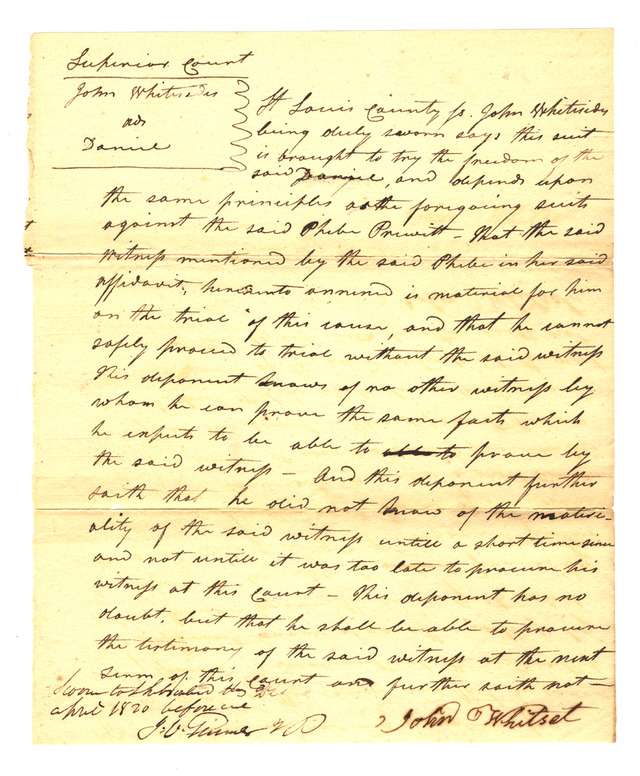 Superior Court
John Whitesides
ads
Daniel
St Louis County ss. John Whitesides
being duly sworn says this suit
is brought to try the freedom of the
said Daniel, and depends upon
the same principles as the foregoing suits
against the said Phebe Prewitt - That the said
witness mentioned by the said Phebe in her said
affidavit, hereunto annexed is material for him
on the trial of this cause, and that he cannot
safely proceed to trial without the said witness
This deponent knows of no other witness by
whom he can prove the same facts which
he expects to be able to able to prove by
the said witness - And this deponent further
saith that he did not know of the materi-
ality of the said witness untill a short time since
and not untill it was too late to procure his
witness at this Court - This deponent has no
doubt, but that he shall be able to procure
the testimony of the said witness at the next
term of this Court and further saith not -
Sworn to & subscribed
april 1820 before me
John Whitset